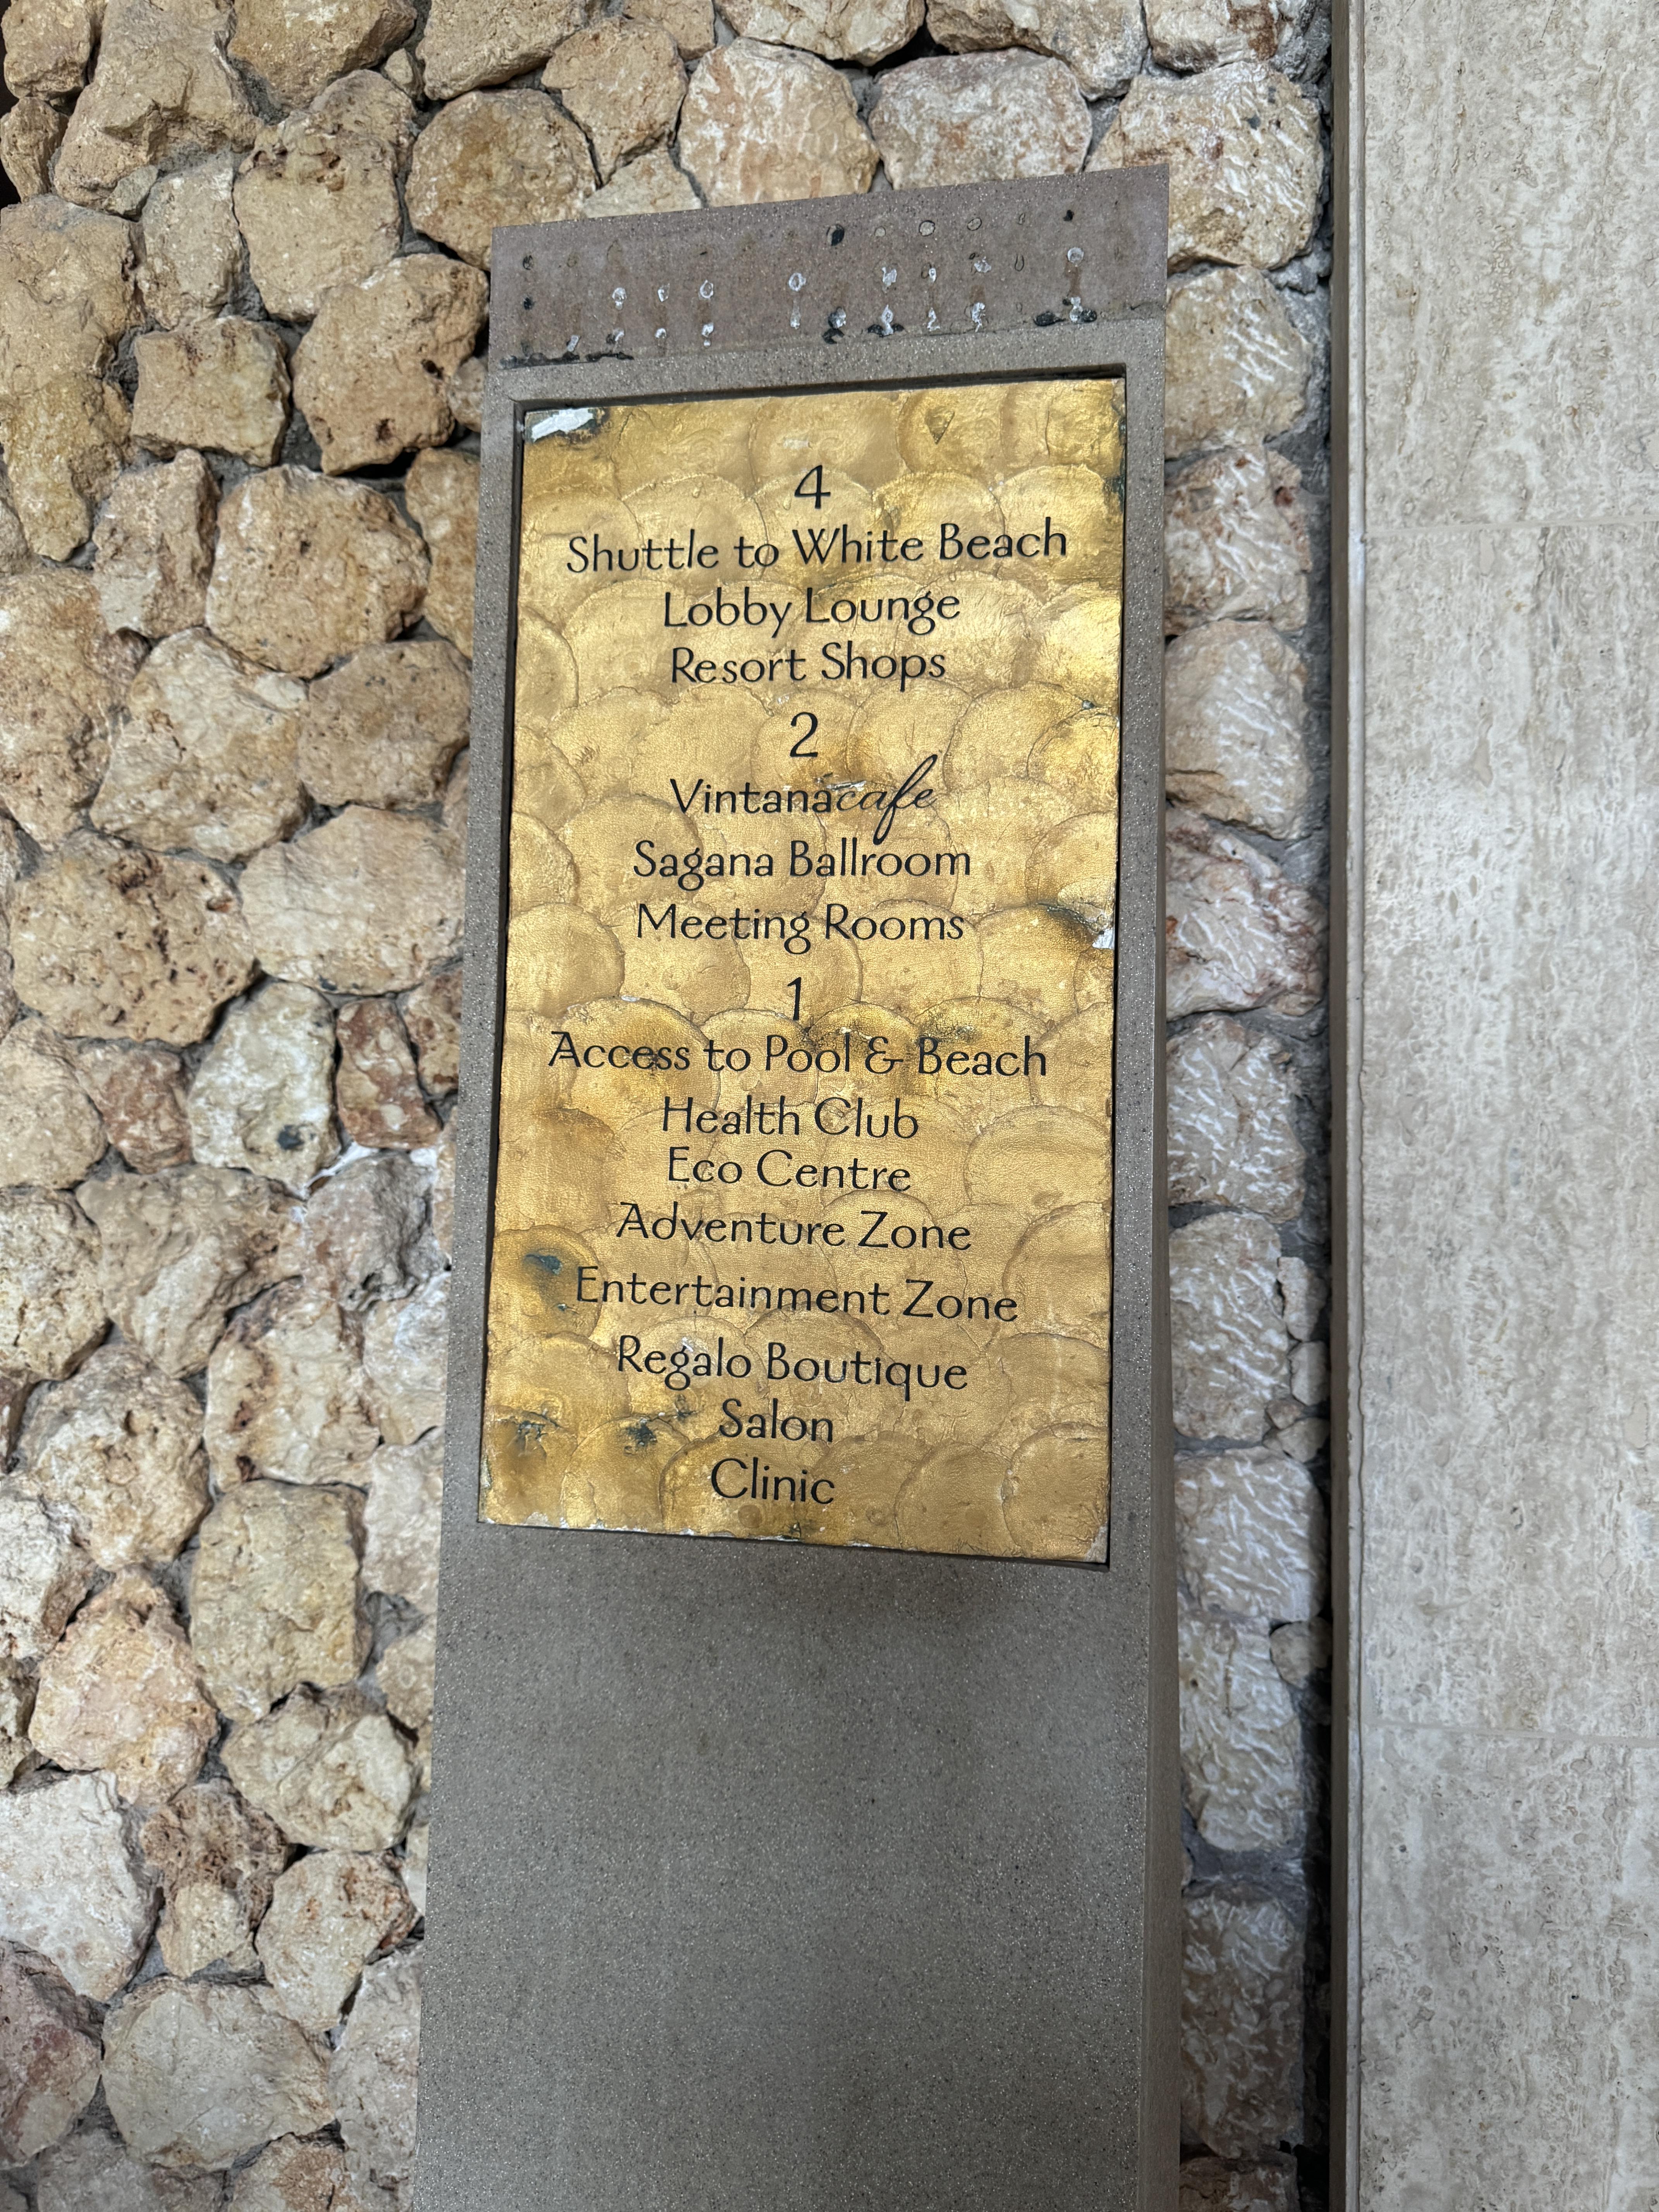 4
Shuttle to White Beach
Lobby Lounge
Resort Shops
2
Vintanacafe
Sagana Ballroom
Meeting Rooms
1
Access to Pool & Beach
Health Club
Eco Centre
Adventure Zone
Entertainment Zone
Regalo Boutique
Salon
Clinic